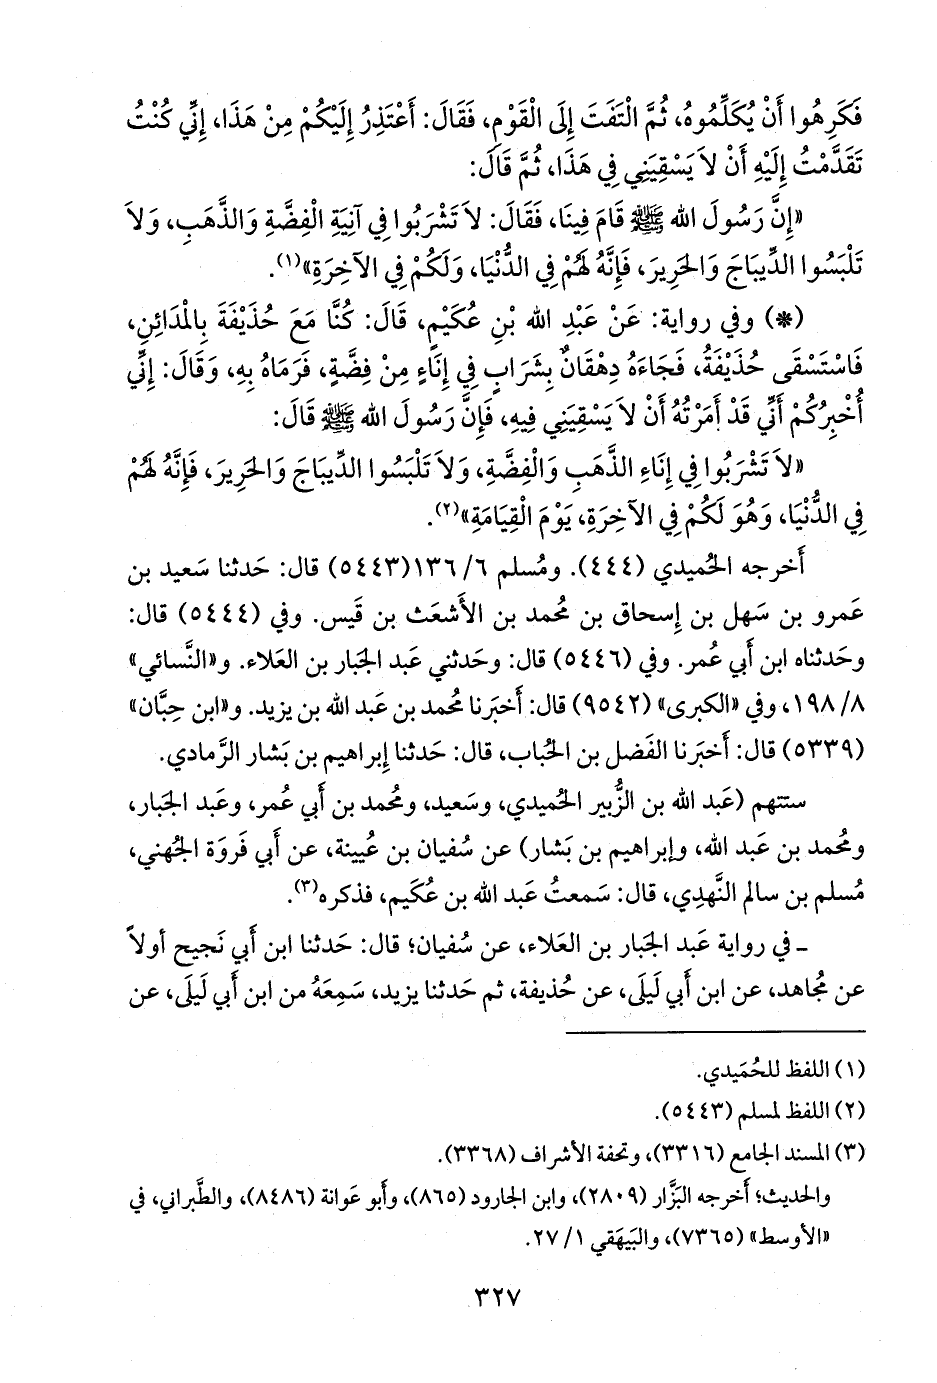 فَكَرِهُوا أَنْ يُكَلِّمُوهُ، ثُمَّ الْتَفَتَ إِلَى الْقَوْمِ، فَقَالَ: أَعْتَذِرُ إِلَيْكُمْ مِنْ هَذَا، إِنِّي كُنْتُ
تَقَدَّمْتُ إِلَيْهِ أَنْ لاَ يَسْقِيَنِي فِي هَذَا، ثُمَّ قَالَ:
«إِنَّ رَسُولَ الله ﷺ قَامَ فِينَا، فَقَالَ: لاَ تَشْرَبُوا فِي آنِيَةِ الْفِضَّةِ وَالذَّهَبِ، وَلاَ
تَلْبَسُوا الدِّيبَاجَ وَالحَرِيرَ، فَإِنَّهُ لَهُمْ فِي الدُّنْيَا، وَلَكُمْ فِي الآخِرَةِ»(١).
(*) وفي رواية: عَنْ عَبْدِ الله بْنِ عُكَيْمٍ، قَالَ: كُنَّا مَعَ حُذَيْفَةَ بِالْمَدَائِنِ،
فَاسْتَسْقَى حُذَيْفَةُ، فَجَاءَهُ دِهْقَانٌ بِشَرَابٍ فِي إِنَاءٍ مِنْ فِضَّةٍ، فَرَمَاهُ بِهِ، وَقَالَ: إِنِّي
أُخْبِرُكُمْ أَنِّي قَدْ أَمَرْتُهُ أَنْ لاَ يَسْقِيَنِي فِيهِ، فَإِنَّ رَسُولَ الله ﷺ قَالَ:
«لاَ تَشْرَبُوا فِي إِنَاءِ الذَّهَبِ وَالْفِضَّةِ، وَلاَ تَلْبَسُوا الدِّيبَاجَ وَالحَرِيرَ، فَإِنَّهُ لَهُمْ
فِي الدُّنْيَا، وَهُوَ لَكُمْ فِي الآخِرَةِ، يَوْمَ الْقِيَامَةِ»(٢).
أَخرجه الحُميدي (٤٤٤). ومُسلم ٦/ ١٣٦(٥٤٤٣) قال: حَدثنا سَعيد بن
عَمرو بن سَهل بن إِسحاق بن مُحمد بن الأَشعَث بن قَيس. وفي (٥٤٤٤) قال:
وحَدثناه ابن أَبي عُمر. وفي (٥٤٤٦) قال: وحَدثني عَبد الجَبار بن العَلاء. و«النَّسائي»
٨/ ١٩٨، وفي «الكبرى» (٩٥٤٢) قال: أَخبَرنا مُحمد بن عَبد الله بن يزيد. و«ابن حِبَّان»
(٥٣٣٩) قال: أَخبَرنا الفَضل بن الحُباب، قال: حَدثنا إِبراهيم بن بَشار الرَّمادي.
ستتهم (عَبد الله بن الزُّبير الحُميدي، وسَعيد، ومُحمد بن أَبي عُمر، وعَبد الجَبار،
ومُحمد بن عَبد الله، وإبراهيم بن بَشار) عن سُفيان بن عُيينة، عن أَبي فَروَة الجُهني،
مُسلم بن سالم النَّهدِي، قال: سَمعتُ عَبد الله بن عُكَيم، فذكره(٣).
ـ في رواية عَبد الجَبار بن العَلاء، عن سُفيان؛ قال: حَدثنا ابن أَبي نَجيح أَولاً
عن مُجاهد، عن ابن أَبي لَيلَى، عن حُذيفة، ثم حَدثنا يزيد، سَمِعَهُ من ابن أَبي لَيلَى، عن
(١) اللفظ للحُمَيدي.
(٢) اللفظ لمسلم (٥٤٤٣).
(٣) المسند الجامع (٣٣١٦)، وتحفة الأشراف (٣٣٦٨).
والحديث؛ أخرجه البَزَّار (٢٨٠٩)، وابن الجارود (٨٦٥)، وأَبو عَوانة (٨٤٨٦)، والطَّبراني، في
«الأوسط» (٧٣٦٥)، والبَيهَقي ١/ ٢٧.
٣٢٧